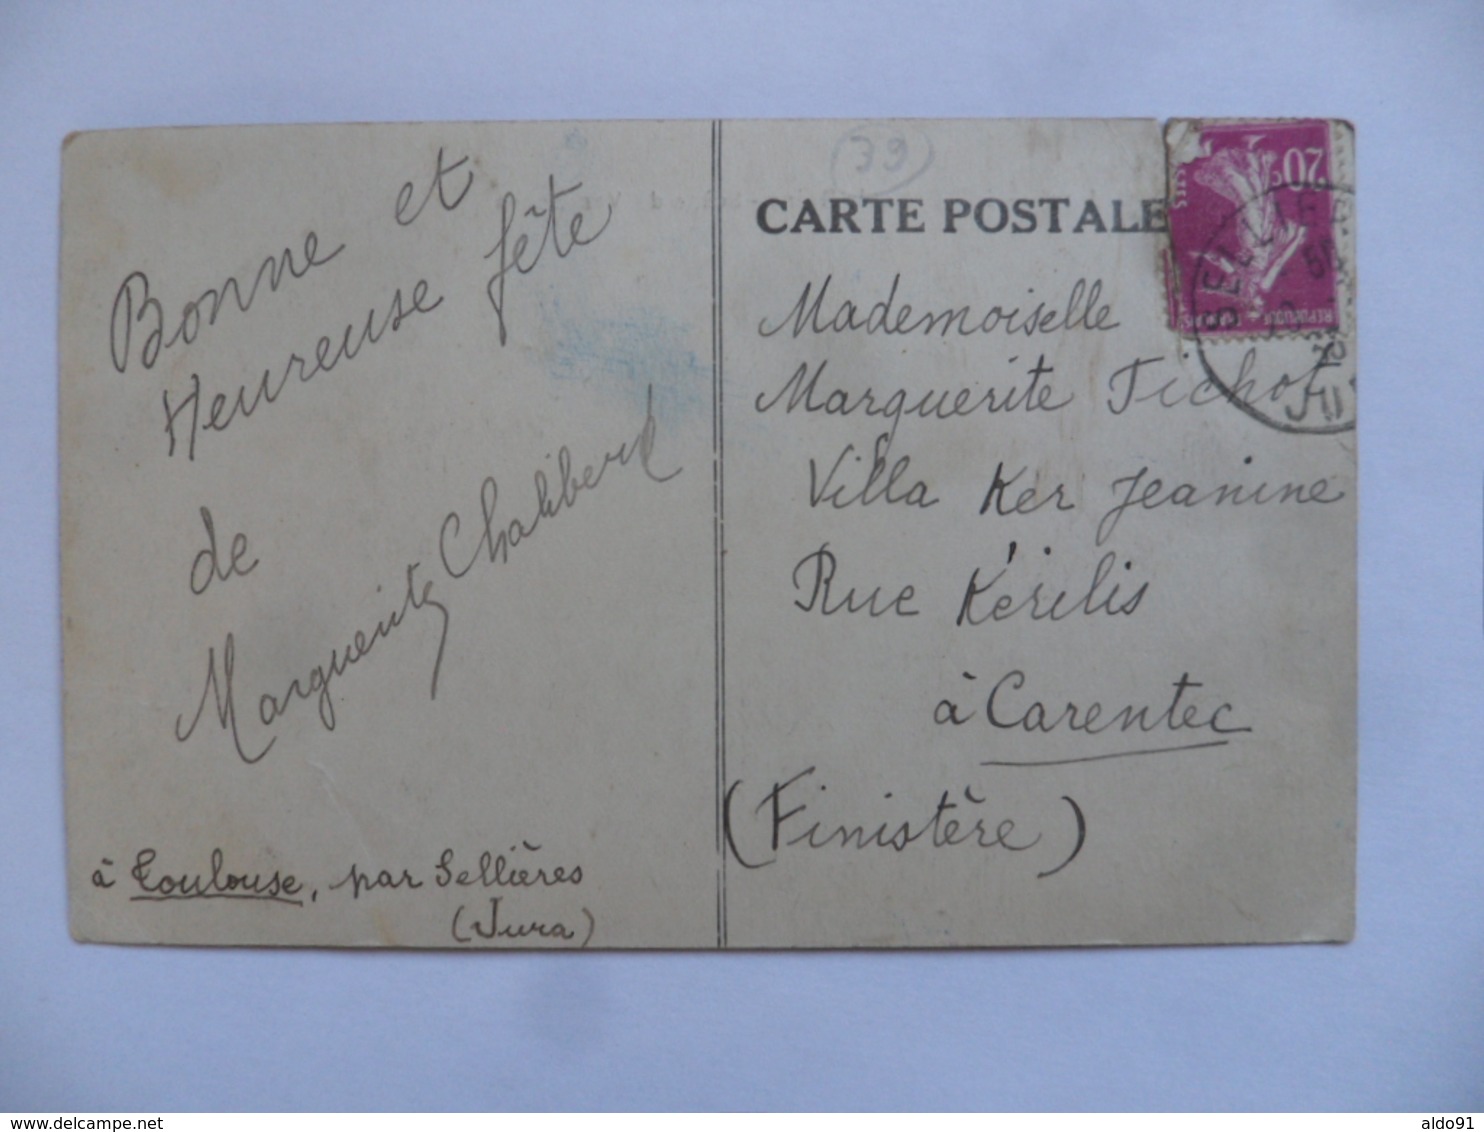 Bonne et
Heureuse fête
de
Marguerite Chalibert
à Toulouse, par Sellières
(Jura)
39
CARTE POSTALE
Mademoiselle
Marguerite Tichot
Villa Ker Jeanine
Rue Kérilis
à Carentec
(Finistère)
20c
delcampe.net
aldo91